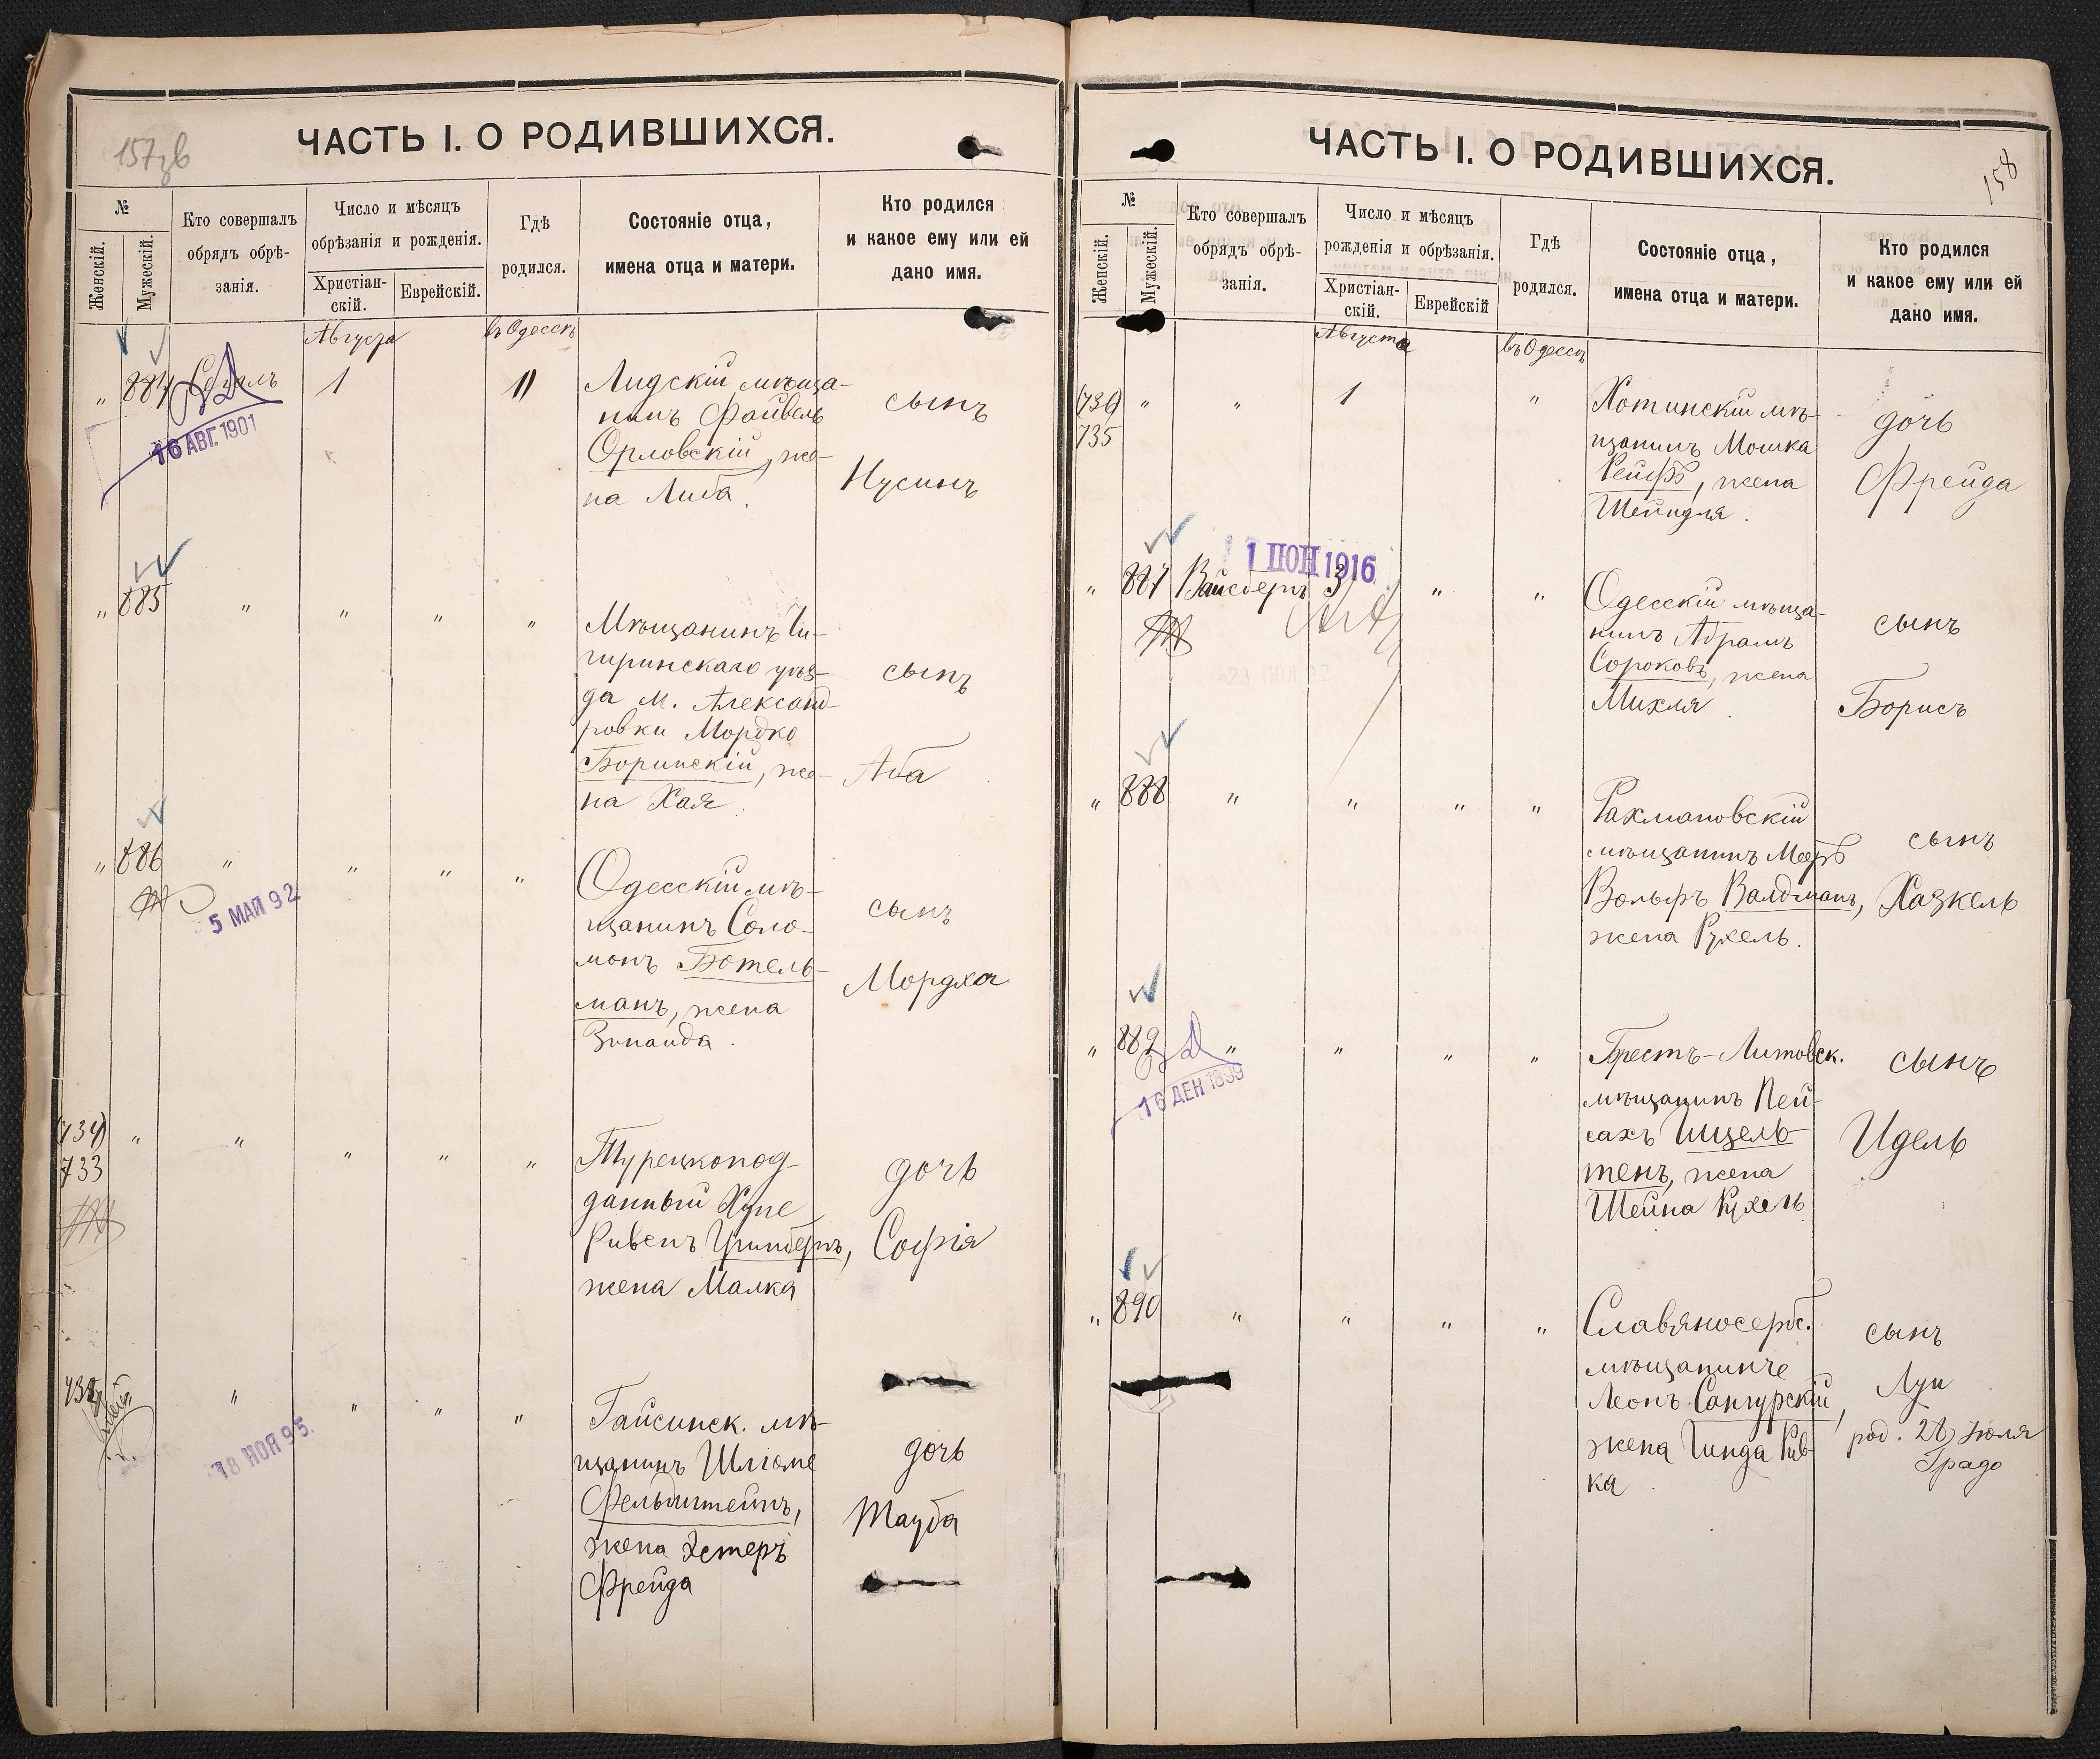 157 зв
ЧАСТЬ I. О РОДИВШИХСЯ.
№
Женскій.
Мужескій.
Кто совершалъ
обрядъ обрѣ-
занія.
Число и мѣсяцъ
обрѣзанія и рожденія.
Христіан-
скій.
Еврейскій.
Гдѣ
родился.
Состояніе отца,
имена отца и матери.
Кто родился
и какое ему или ей
дано имя.
Августа
въ Одессѣ
" 884 Сегалъ 1 11
16 АВГ. 1901
Лидскій мѣща-
нинъ Файвель
Орловскій, же-
на Либа.
сынъ
Нусинъ
" 885 " " " "
Мѣщанинъ Чи-
гиринскаго уѣз-
да м. Александ-
ровки Мордко
Боринскій, же-
на Хая.
сынъ
Аба
" 886 " " " "
5 МАЙ 92
Одесскій мѣ-
щанинъ Соло-
монъ Ботель-
манъ, жена
Зинаида.
сынъ
Мордха
(734) " " " " "
733
Турецкопод-
данный Хуне
Рувенъ Гринбергъ,
жена Малка
дочь
Софія
" " " "
18 НОЯ 95.
Гайсинск. мѣ-
щанинъ Шліоме
Фельдштейнъ,
жена Эстеръ
Фрейда
дочь
Тауба
158
ЧАСТЬ I. О РОДИВШИХСЯ.
№
Женскій.
Мужескій.
Кто совершалъ
обрядъ обрѣ-
занія.
Число и мѣсяцъ
рожденія и обрѣзанія.
Христіан-
скій.
Еврейскій
Гдѣ
родился.
Состояніе отца,
имена отца и матери.
Кто родился
и какое ему или ей
дано имя.
Августа
въ Одессѣ
(736) " " 1 "
735
Хотинскій мѣ-
щанинъ Мошка
Рейфъ, жена
Шейндля.
дочь
Фрейда
1 ІЮН 1916
" 887 Вайсбергъ 3 " "
Одесскій мѣща-
нинъ Абрамъ
Сороковъ, жена
Михля.
сынъ
Борисъ
" 888 " " " "
Рахмановскій
мѣщанинъ Мееръ
Вольфъ Валдманъ,
жена Рухель.
сынъ
Хазкель
" 889 " " " "
16 ДЕК 1899
Брестъ-Литовск.
мѣщанинъ Пей-
сахъ
тенъ, жена
Шейна Рухель
сынъ
Идель
" 890 " " " "
Славяносербс.
мѣщанинъ
Леонъ Сангурскій,
жена Гинда Рив-
ка.
сынъ
Луи
род. 28 Іюля